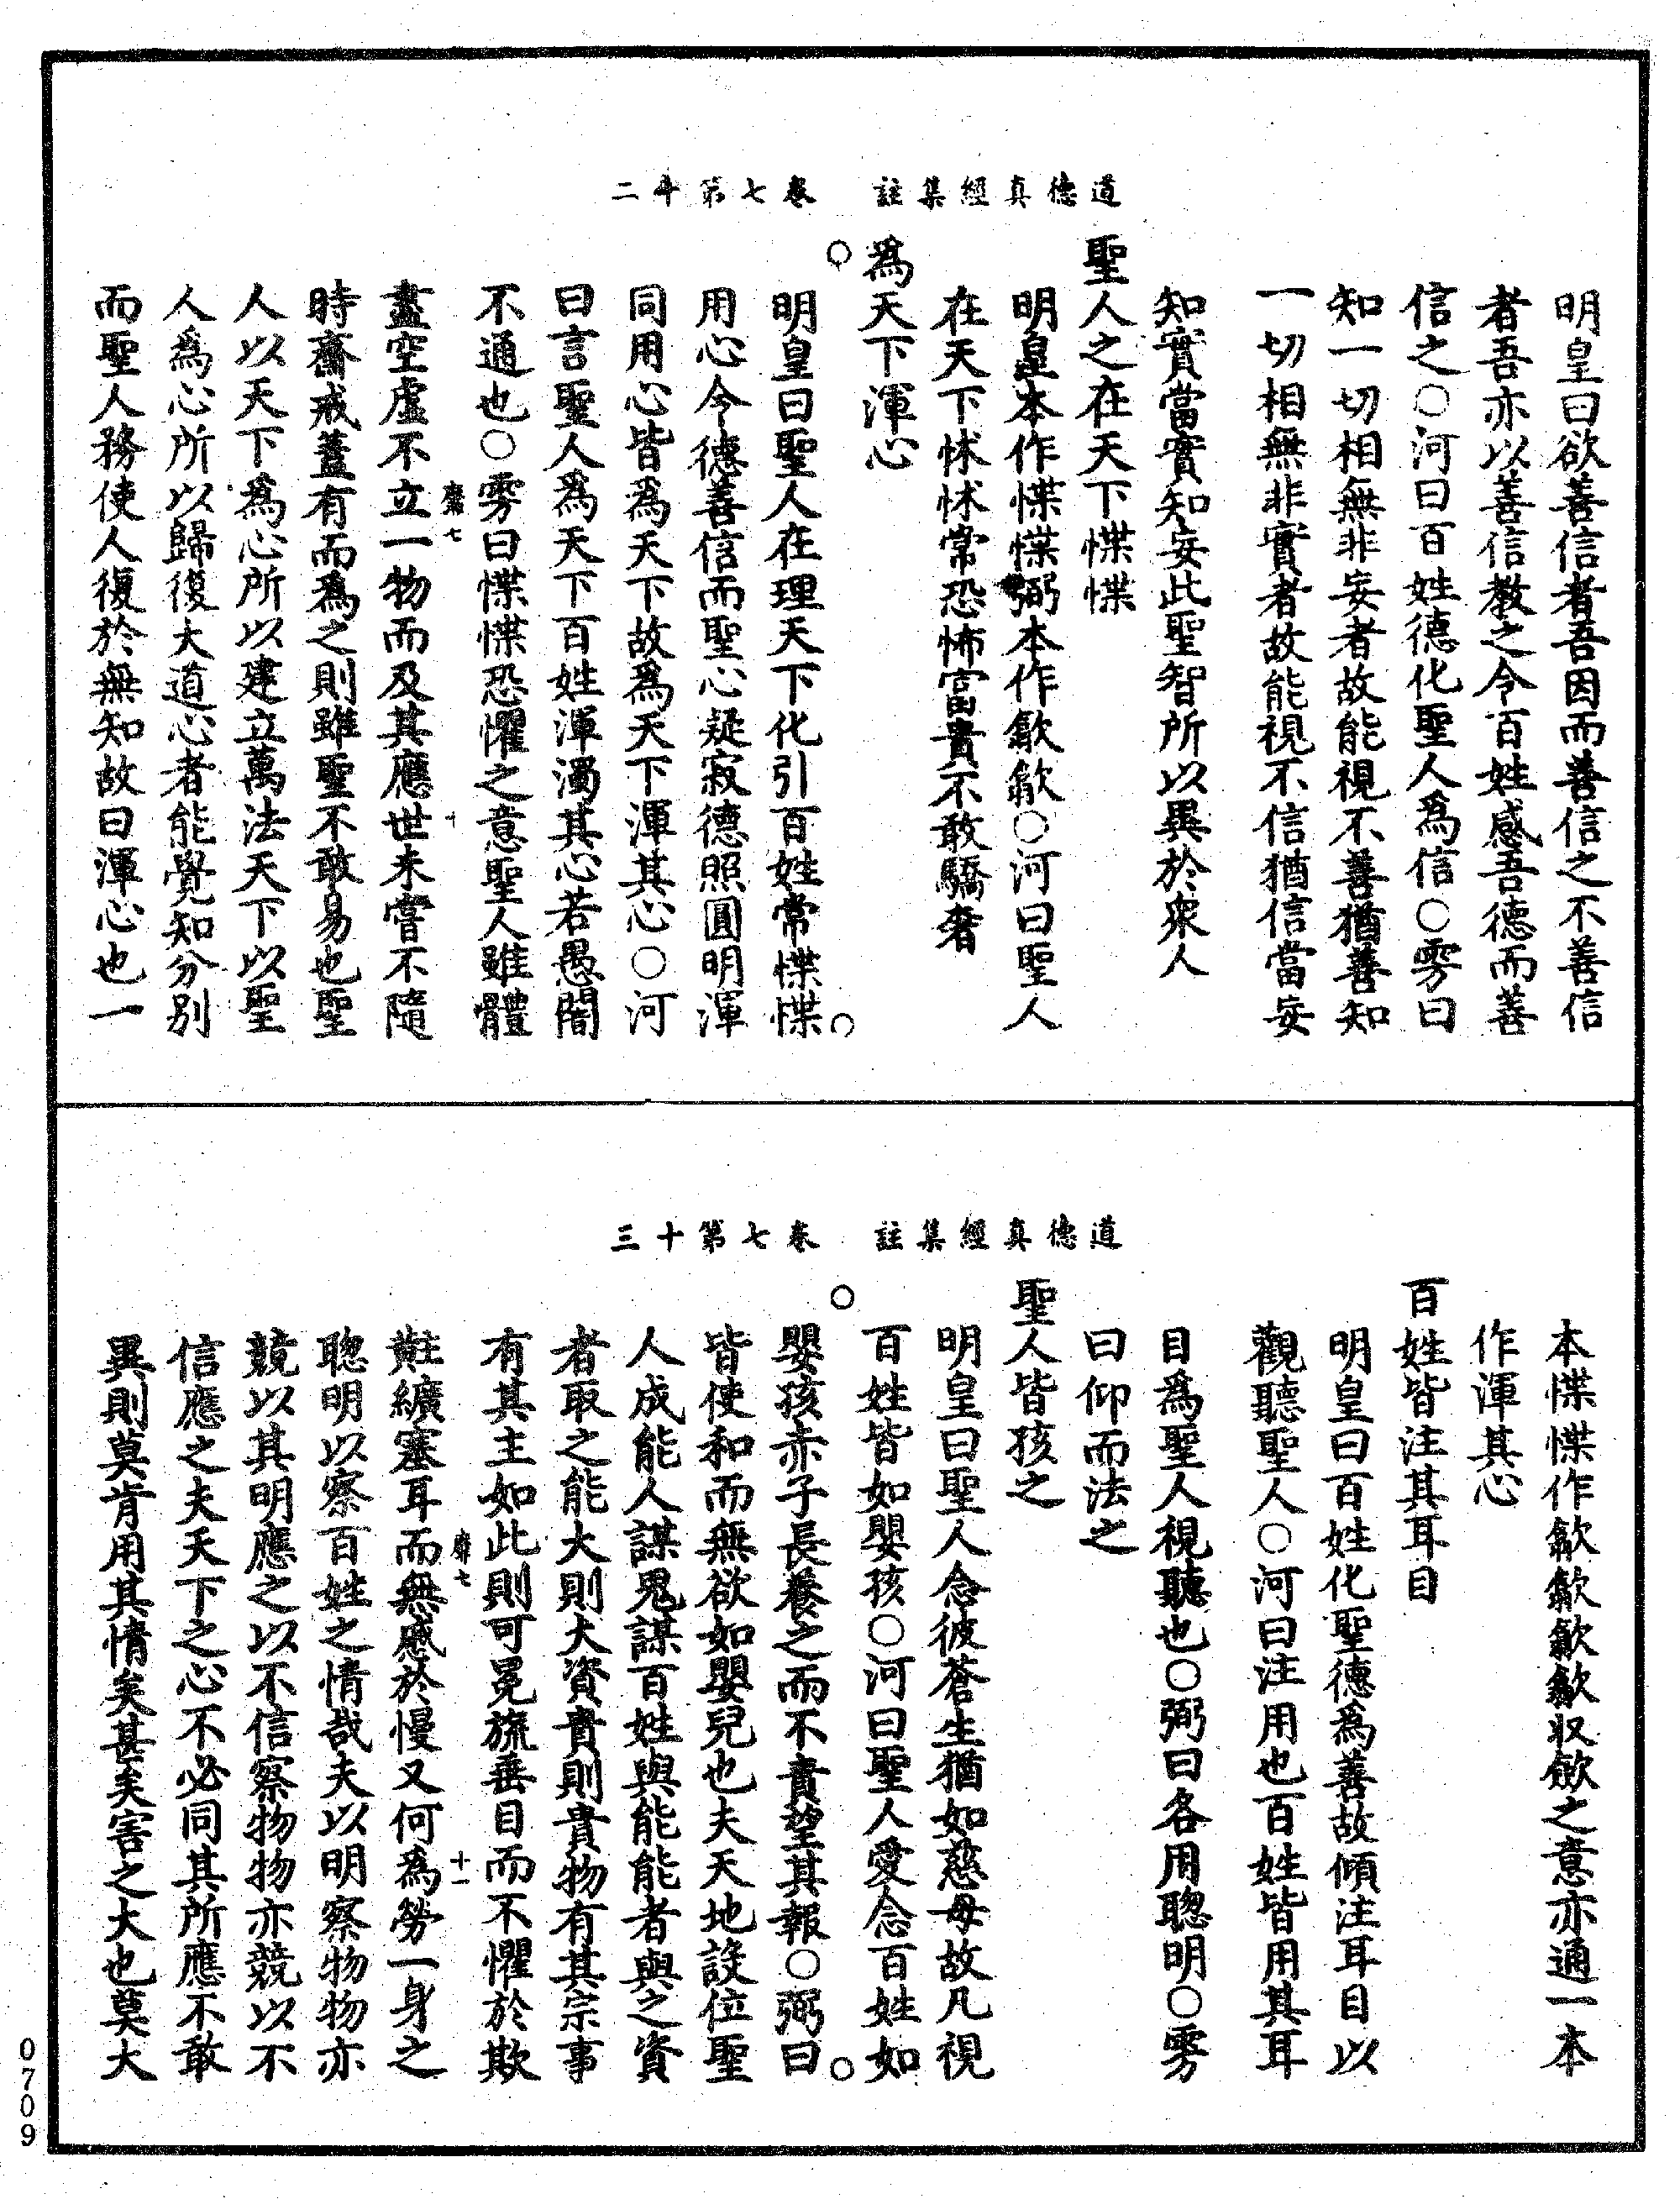 道德真經集註　卷七第十二
明皇曰欲善信者吾因而善信之不善信
者吾亦以善信教之令百姓感吾德而善
信之○河曰百姓德化聖人為信○雱曰
知一切相無非妄者故能視不善猶善知
一切相無非實者故能視不信猶信當妄
知實當實知妄此聖智所以異於衆人
聖人之在天下惵惵
明皇本作惵惵弼本作歙歙○河曰聖人
在天下怵怵常恐怖富貴不敢驕奢
為天下渾心
明皇曰聖人在理天下化引百姓常惵惵
用心令德善信而聖心疑寂德照圓明渾
同用心皆為天下故為天下渾其心○河
曰言聖人為天下百姓渾濁其心若愚闇
不通也○雱曰惵惵恐懼之意聖人雖體
盡空虛不立一物而及其應世未嘗不隨
時齋戒蓋有而為之則雖聖不敢易也聖
人以天下為心所以建立萬法天下以聖
人為心所以歸復大道心者能覺知分別
而聖人務使人復於無知故曰渾心也一
道德真經集註　卷七第十三
本惵惵作歙歙歙歙収斂之意亦通一本
作渾其心
百姓皆注其耳目
明皇曰百姓化聖德為善故傾注耳目以
觀聽聖人○河曰注用也百姓皆用其耳
目為聖人視聽也○弼曰各用聰明○雱
曰仰而法之
聖人皆孩之
明皇曰聖人念彼蒼生猶如慈母故凡視
百姓皆如嬰孩○河曰聖人愛念百姓如
嬰孩赤子長養之而不責望其報○弼曰
皆使和而無欲如嬰兒也夫天地設位聖
人成能人謀鬼謀百姓與能能者與之資
者取之能大則大資貴則貴物有其宗事
有其主如此則可冕旒垂目而不懼於欺
黈纊塞耳而無慼於慢又何為勞一身之
聰明以察百姓之情哉夫以明察物物亦
競以其明應之以不信察物物亦競以不
信應之夫天下之心不必同其所應不敢
異則莫肯用其情矣甚矣害之大也莫大
0709